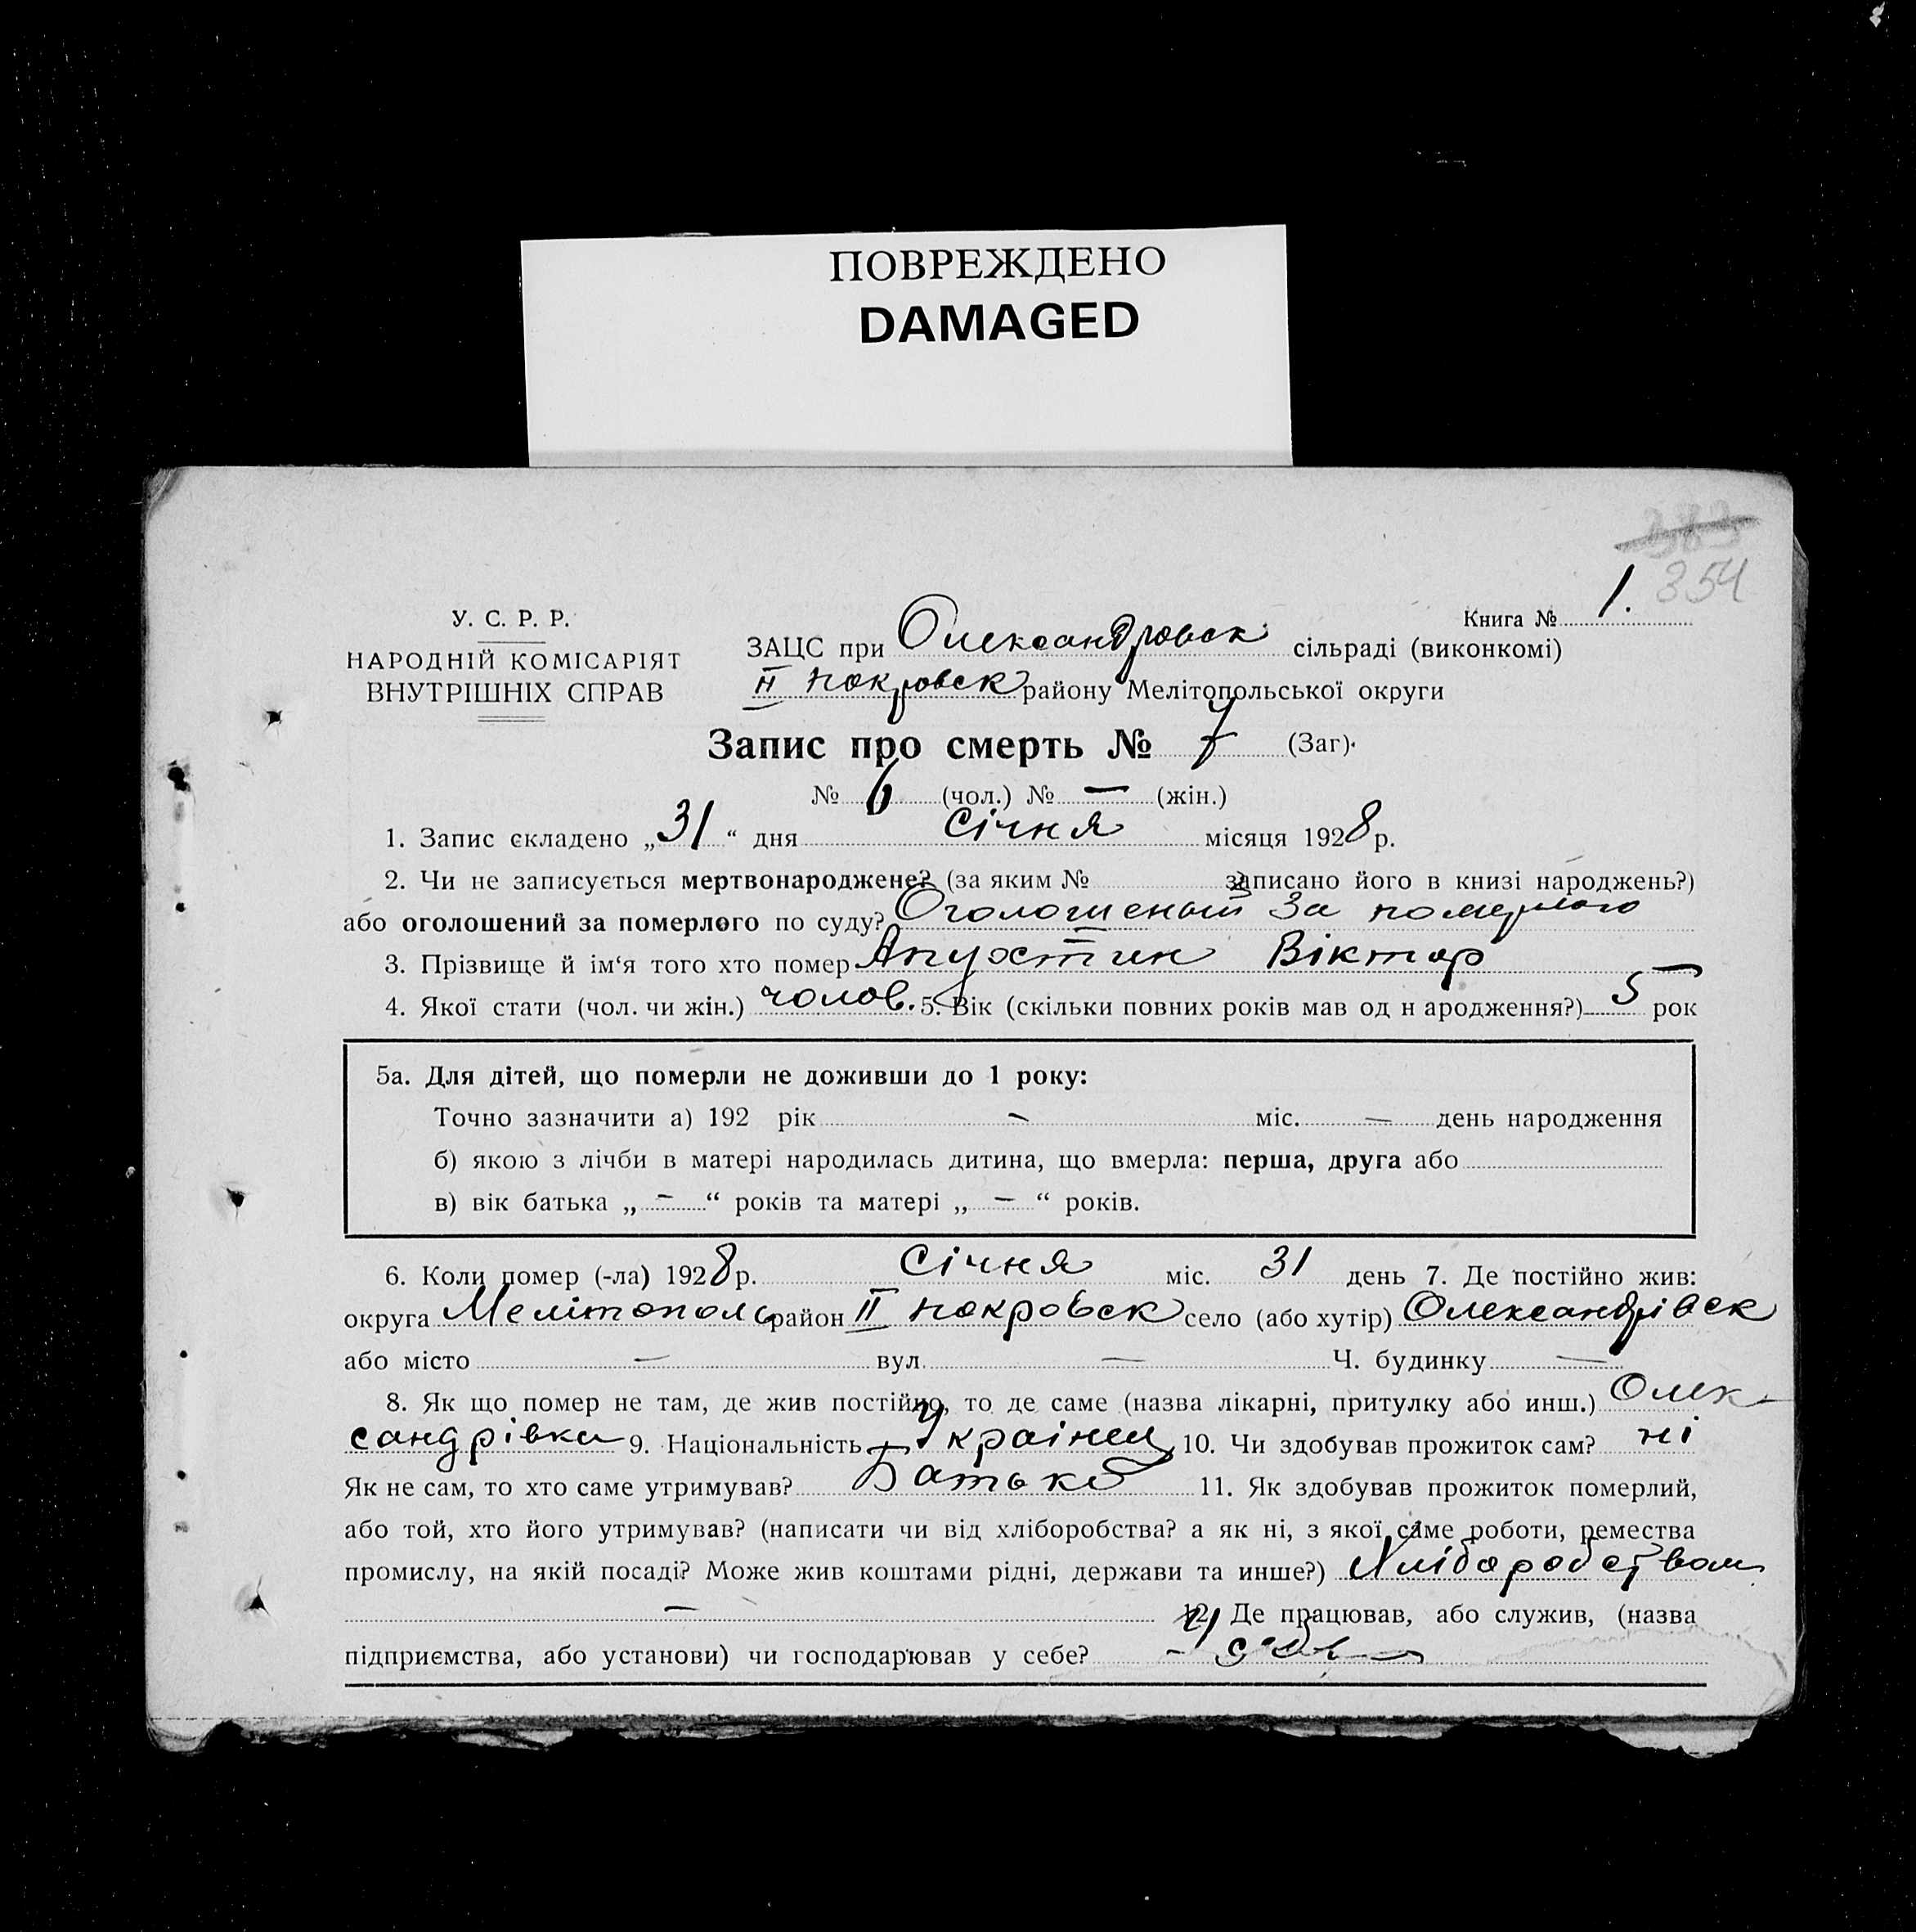 ПОВРЕЖДЕНО
DAMAGED
383
354
У. С. Р. Р.
НАРОДНІЙ КОМІСАРІЯТ
ВНУТРІШНІХ СПРАВ
Книга № 1.
ЗАЦС при Олександровск сільраді (виконкомі)
II Покровск району Мелітопольської округи
Запис про смерть № 7 (Заг).
№ 6 (чол.) № — (жін.)
1. Запис складено „31“ дня Січня місяця 1928 р.
2. Чи не записується мертвонароджене? (за яким № записано його в книзі народжень?)
або оголошений за померлого по суду? Оголошений За померлого
3. Прізвище й ім‘я того хто помер Апустин Віктор —
4. Якої стати (чол. чи жін.) чолов. 5. Вік (скільки повних років мав од н ародження?) 5 рок
5а. Для дітей, що померли не доживши до 1 року:
Точно зазначити а) 192 рік — міс. — день народження
б) якою з лічби в матері народилась дитина, що вмерла: перша, друга або
в) вік батька „ — “ років та матері „ — “ років.
6. Коли помер (-ла) 1928 р. Січня міс. 31 день 7. Де постійно жив:
округа Мелітополь район II Покровск село (або хутір) Олександрівск
або місто — вул. — Ч. будинку —
8. Як що помер не там, де жив постійно, то де саме (назва лікарні, притулку або инш.) Олек-
сандрівка 9. Національність Українец 10. Чи здобував прожиток сам? ні
Як не сам, то хто саме утримував? Батько 11. Як здобував прожиток померлий,
або той, хто його утримував? (написати чи від хліборобства? а як ні, з якої саме роботи, ремества
промислу, на якій посаді? Може жив коштами рідні, держави та инше?) Хліборобством
— 12. Де працював, або служив, (назва
підприємства, або установи) чи господарював у себе? У себе